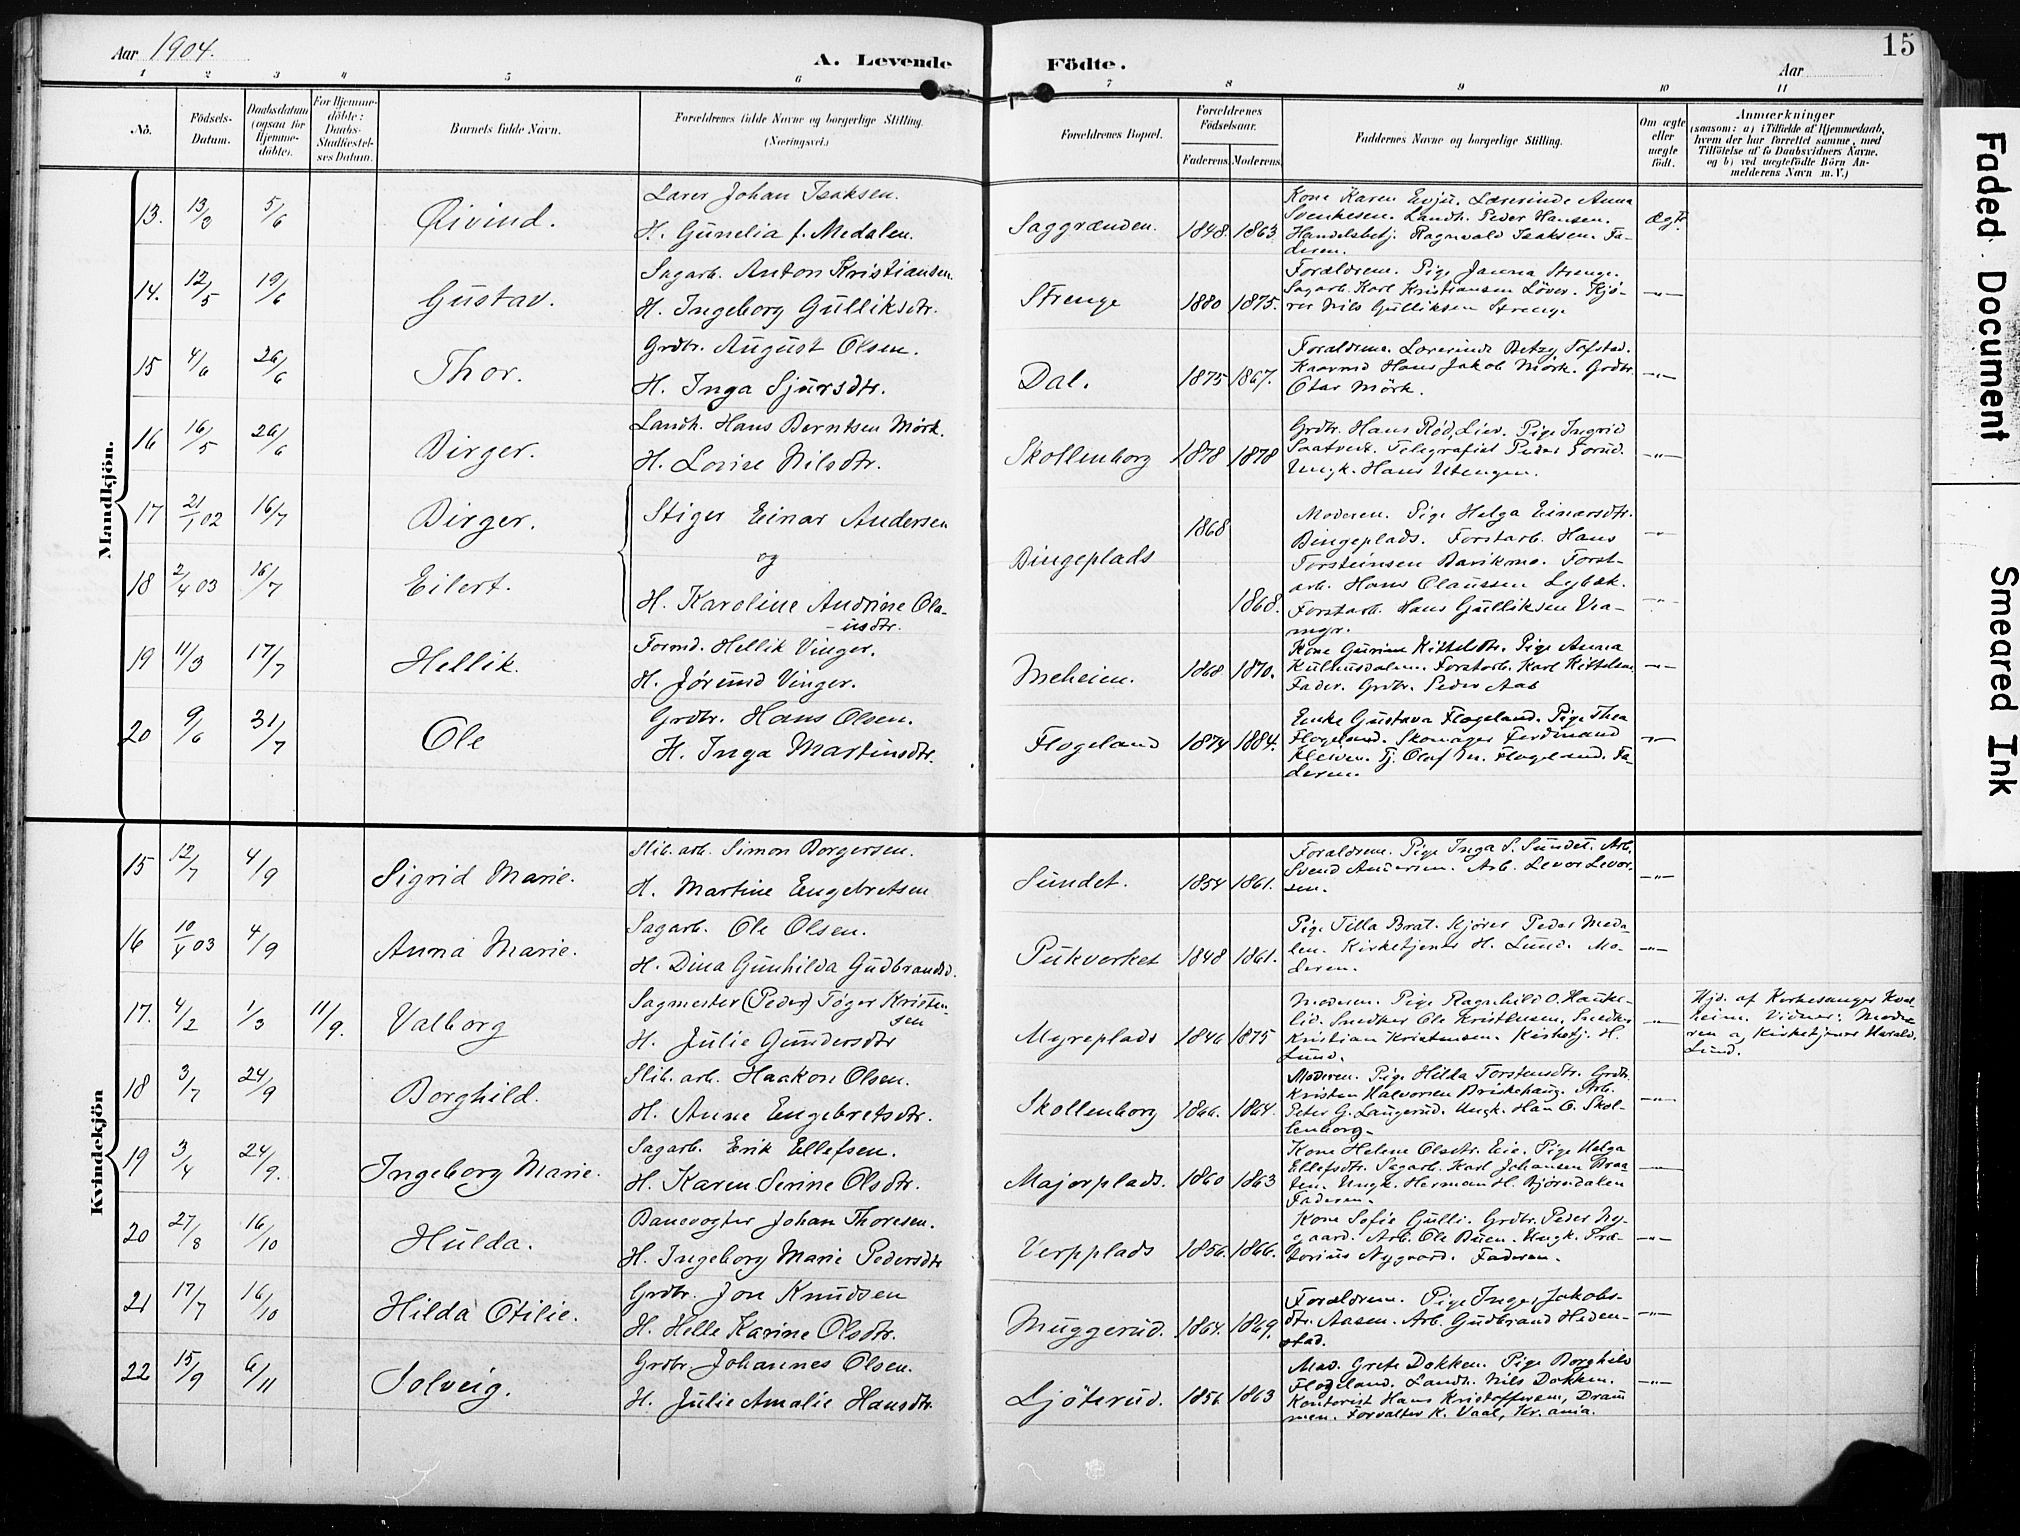 Aar 1904.
A. Levende Födte.
Aar
15
1 2 3 4 5 6 7 8 9 10 11
No.
Födsels-Datum.
Daabsdatum (ogsaa for Hjemme-döbte).
For Hjemme-döbte: Daabs-Stadfæstel-ses Datum.
Barnets fulde Navn.
Forældrenes fulde Navne og borgerlige Stilling. (Næringsvei.)
Forældrenes Bopæl.
Forældrenes Födselsaar.
Faderens. Moderens.
Faddernes Navne og borgerlige Stilling.
Om ægte eller uægte födt.
Anmærkninger
(saasom: a) i Tilfælde af Hjemmedaab, hvem der har forrettet samme, med Tilföielse af to Daabsvidners Navne, og b) ved uægtefödte Börn An-melderens Navn m. V.)
Mandkjön.
13. 13/3 5/6 Øivind. Lærer Johan Isaksen.
H. Gunelia f. Medalen. Saggrænden. 1848. 1863.
Kone Karen Evju. Lærerinde Anna
Svenkesen. Landh. Peder Hansen.
Handelsbetj. Ragnvald Isaksen. Fa-
deren.
Ægte.
14. 12/5 19/6 Gustav. Sagarb. Anton Kristiansen.
H. Ingeborg Gulliksdtr. Strenge 1880 1875.
Forældrene. Pige Janna Strenge.
Sagarb. Karl Kristiansen Löver. Kjö-
rer Nils Gulliksen Strenge
-"-
15 4/6 26/6 Thor. Grdbr. August Olsen.
H. Inga Sjursdtr. Dal. 1875 1867.
Forældrene. Lærerinde Betzy Tofstad.
Hans Jakob Mörk. Grdbr.
Otar Mörk.
-"-
16 16/5 26/6 Birger. Landh. Hans Berntsen Mörk.
H. Lovise Nilsdtr. Skollenborg 1878 1878
Grdbr. Hans Rød, Lier. Pige Ingrid
Saatvedt. Telegrafist Peder
Ungk. Hans Utengen.
-"-
17 21/1 02 16/7 Birger. Stiger Einar Andersen
og
18 2/4 03 16/7 Eilert. H. Karoline Andrine Ola-
usdtr.
Bingeplads 1868 1868.
Moderen. Pige Helga Einarsdtr.
Bingeplads. Forstarb. Hans
Torsteinsen Forst-
arb. Hans Olaussen Lybæk.
Forstarb. Hans Gulliksen Vra-
-"-
-"-
19 11/3 17/7 Hellik. Formd. Hellik Vinger.
H. Jørund Vinger. Meheien. 1868 1870.
Kone Gurine Kittelsdtr. Pige Anna
Kulhusdalen. Forstarb. Karl Kittelsen
Fader. Grdbr. Peder Aas
-"-
20 9/6 31/7 Ole Grdbr. Hans Olsen.
H. Inga Martinsdtr. Flogeland 1874 1884.
Enke Gustava Flogeland. Pige Thea
Flogeland. Skomager Ferdinand
Kleiven. Tj. Olaf M. Flogeland. Fa-
deren.
-"-
Kvindekjön
15 12/7 4/9 Sigrid Marie. Slib. arb. Simon Borgersen.
H. Martine Engebretsen Sundet. 1854 1861.
Forældrene. Pige Inga S. Sundet. Arb.
Svend Andersen. Arb. Levor Levor-
sen.
-"-
16 10/4 03 4/9 Anna Marie. Sagarb. Ole Olsen.
H. Dina Gunhilda Gudbrandsd. Pukverket 1848 1861.
Pige Tilla Brat. Kjörer Peder Meda-
len. Kirketjener H. Lund. Mo-
deren.
-"-
17. 4/2 1/3 11/9. Valborg Sagmester (Peder) Töger Kristen-
sen
H. Julie Gundersdtr Myreplads 1846 1875
Moderen. Pige Ragnhild O. Hauke-
lid. Snedker Ole Kristensen. Snedker
Kristian Kristensen. Kirketj. H.
Lund.
-"-
Hjd. af Kirkesanger Kval-
heim. Vidner: Mode-
ren og Kirketjener Harald
Lund.
18 3/7 24/9 Borghild. Slib. arb. Haakon Olsen.
H. Anne Engebretsdtr. Skollenborg 1866. 1864.
Moderen. Pige Hilda Torstensdtr. Grdbr.
Kristen Halvorsen Briskehaug. Arb.
Peter G. Laugerud. Ungk. Han O. Skol-
lenborg.
-"-
19 3/4 24/9. Ingeborg Marie. Sagarb. Erik Ellefsen.
H. Karen Serine Olsdtr. Majorplads. 1860 1863
Kone Helene Olsdtr. Eie. Pige Helga
Ellefsdtr. Sagarb. Karl Johansen Braa-
ten. Ungk. Herman H. Bjørndalen
Faderen.
-"-
20 27/8 16/10 Hulda. Banevogter Johan Thoresen.
H. Ingeborg Marie Pedersdtr Verpplads 1856. 1866.
Kone Sofie Gulli. Grdbr. Peder Ny-
gaard. Arb. Ole Buen. Ungk. Præ-
torius Nygaard. Faderen.
-"-
21 17/7 16/10 Hilda Otilie. Grdbr. Jon Knudsen
H. Helle Karine Olsdtr. Muggerud. 1864. 1869.
Forældrene. Pige Inger Jakobs-
dtr. Aasen. Arb. Gudbrand Heden-
stad.
-"-
22 15/9 6/11 Solveig. Grdbr Johannes Olsen.
H. Julie Amalie Hansdtr. Ljöterud. 1856 1863
Mad. Grete Dokken. Pige Borghild
Flogeland. Landh. Nils Dokken.
Kontorist Hans Kristoffersen, Dram-
men. Forvalter K. Vaal, Kr.ania.
-"-
Faded Document
Smeared Ink